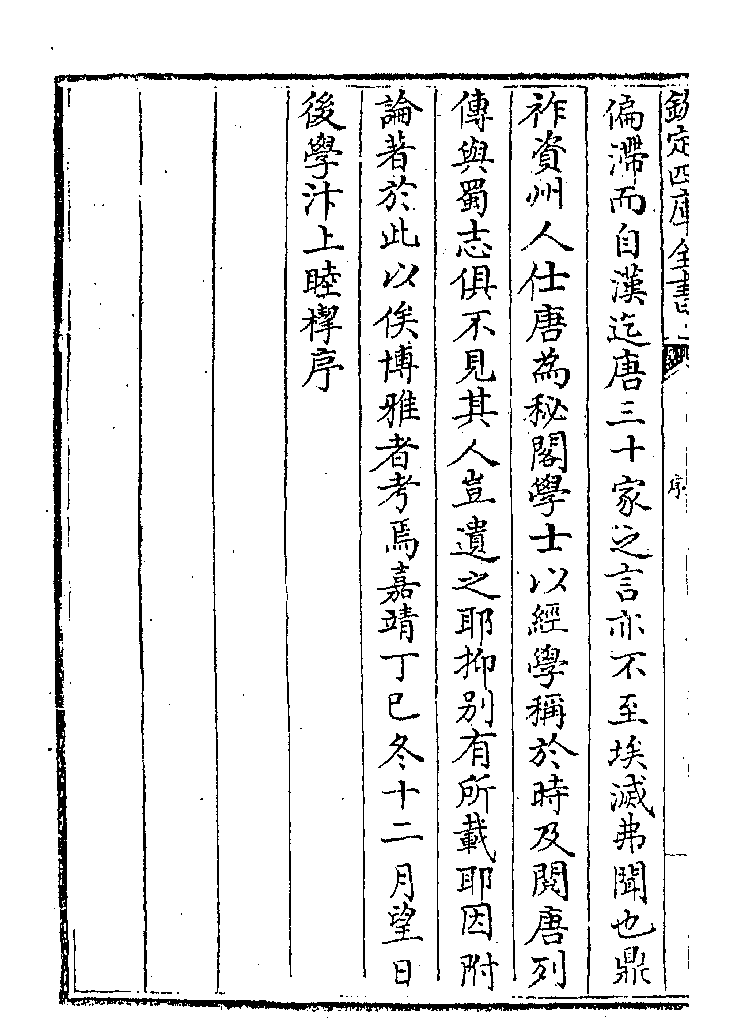 欽定四庫全書
序
偏滯而自漢迄唐三十家之言亦不至埃滅弗聞也鼎
祚資州人仕唐為秘閣學士以經學稱於時及閱唐列
傳與蜀志俱不見其人豈遺之耶抑别有所載耶因附
論著於此以俟博雅者考焉嘉靖丁巳冬十二月望日
後學汴上睦㮮序